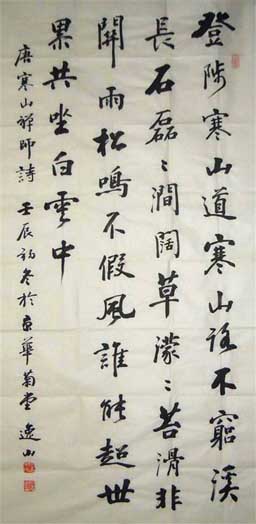 登陟寒山道寒山路不窮溪
長石磊々澗闊草濛々苔滑非
關雨松鳴不假風誰能超世
累共坐白雲中
唐寒山禪師詩 壬辰初冬於京華菊堂逸山